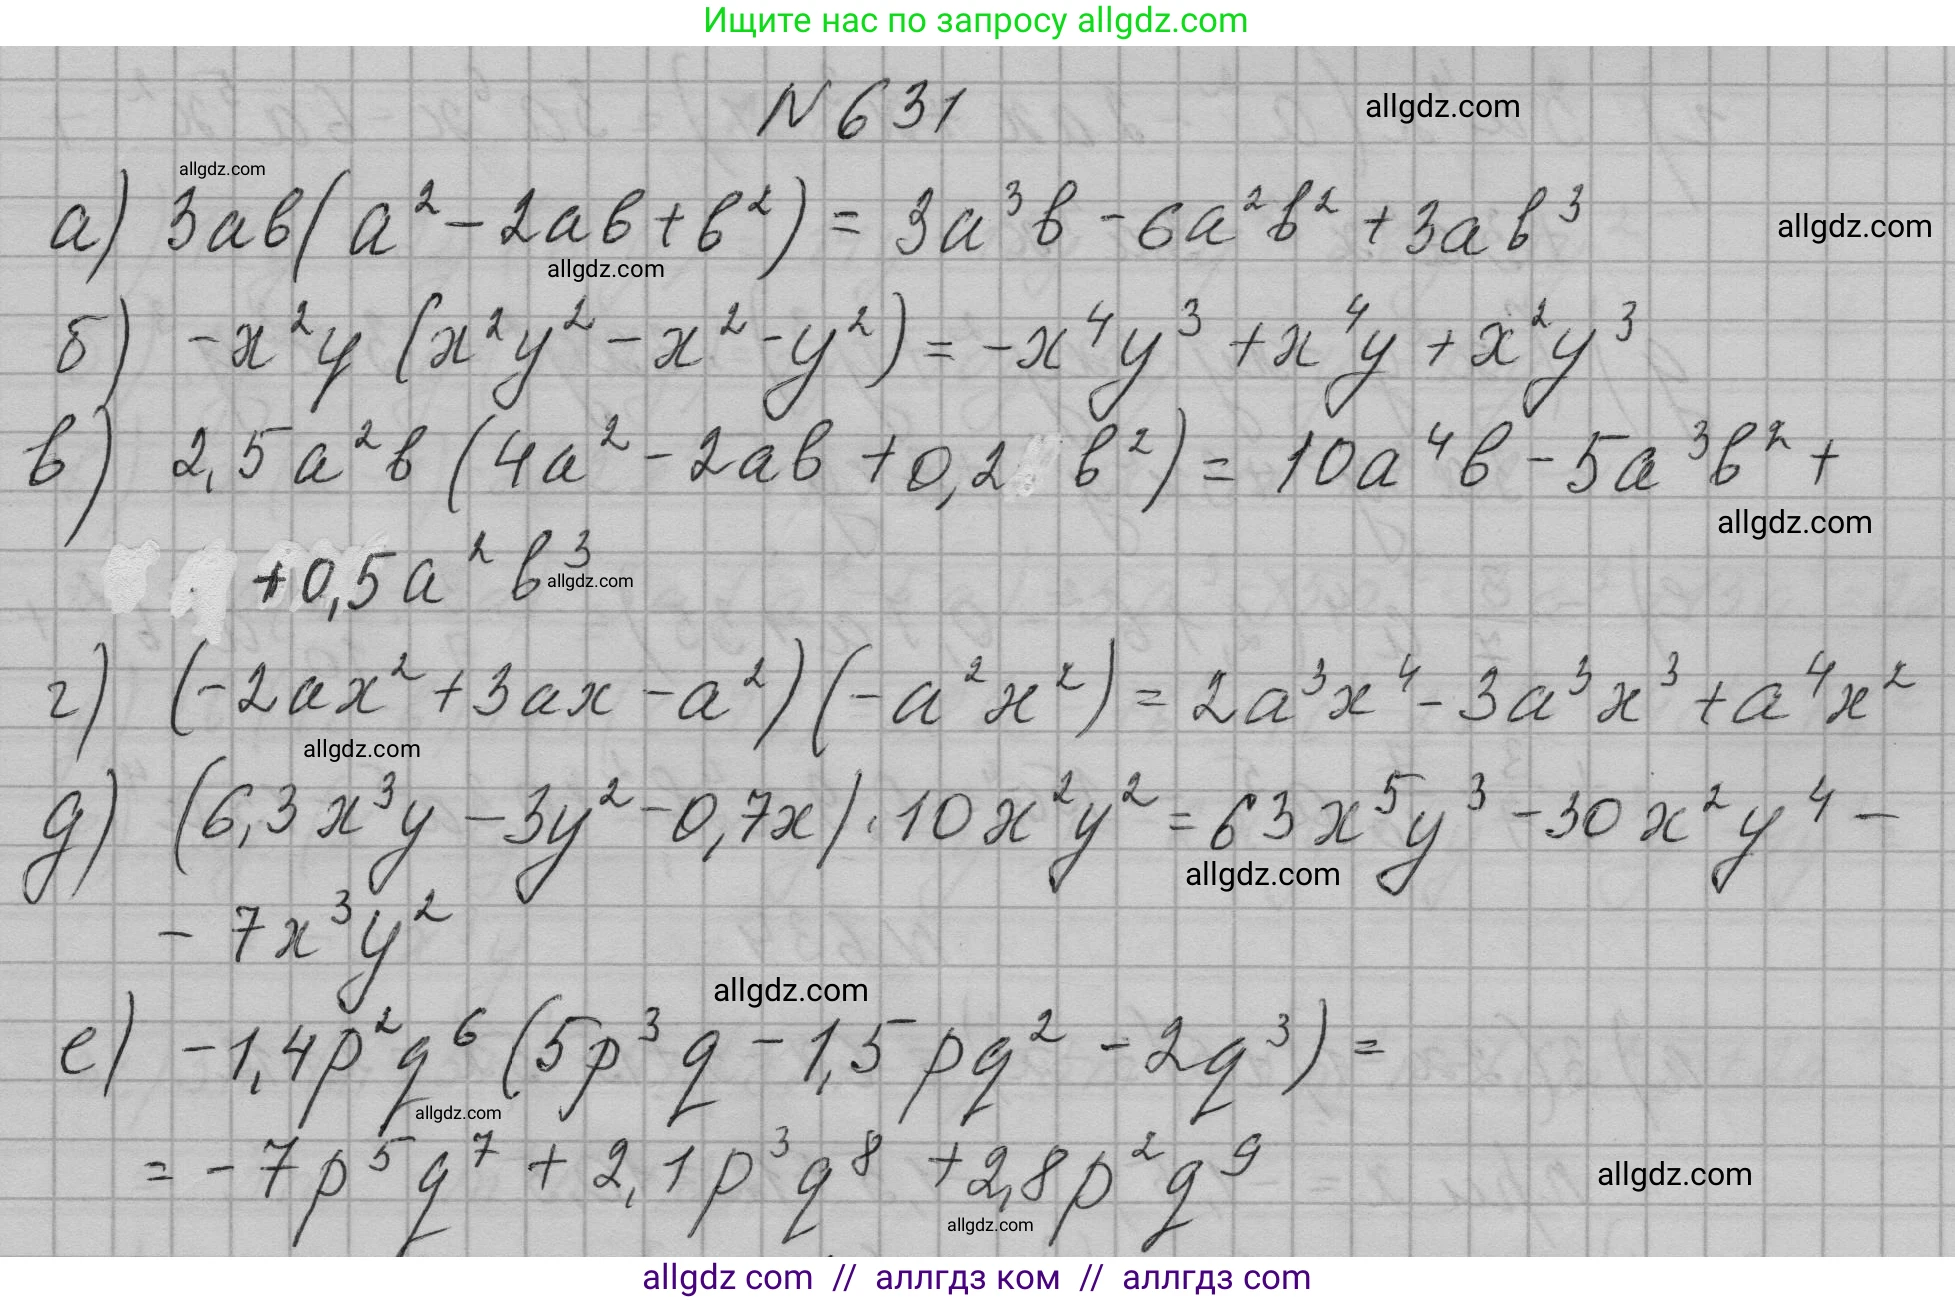 Ищите нас по запросу allgdz.com
N 631
allgdz.com
allgdz.com
а) 3ab(a² - 2ab + b²) = 3a³b - 6a²b² + 3ab³
allgdz.com
allgdz.com
б) -x²y (x²y² - x² - y²) = -x⁴y³ + x⁴y + x²y³
в) 2,5a²b (4a² - 2ab + 0,2 b²) = 10a⁴b - 5a³b² +
allgdz.com
+0,5a²b³
allgdz.com
г) (-2ax² + 3ax - a²)(-a²x²) = 2a³x⁴ - 3a³x³ + a⁴x²
allgdz.com
д) (6,3x³y - 3y² - 0,7x) · 10x²y² = 63x⁵y³ - 30x²y⁴ -
allgdz.com
- 7x³y²
allgdz.com
е) -1,4p²q⁶ (5p³q - 1,5pq² - 2q³) =
allgdz.com
= -7p⁵q⁷ + 2,1p³q⁸ + 2,8p²q⁹
allgdz.com
allgdz.com
allgdz com // аллгдз ком // аллгдз com